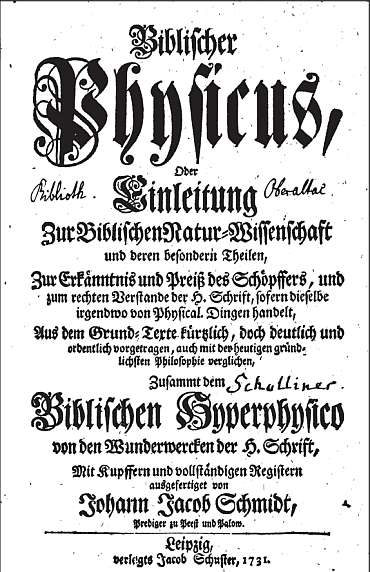 Biblischer
Physicus,
Oder
Biblioth. Einleitung Oberaltac.
Zur Biblischen Natur-Wissenschaft
und deren besondern Theilen,
Zur Erkänntnis und Preiß des Schöpffers, und
zum rechten Verstande der H. Schrift, sofern dieselbe
irgendwo von Physical. Dingen handelt,
Aus dem Grund-Texte kürtzlich, doch deutlich und
ordentlich vorgetragen, auch mit der heutigen gründ-
lichsten Philosophie verglichen,
Zusammt dem Schulliner.
Biblischen Hyperphysico
von den Wunderwercken der H. Schrift,
Mit Kupffern und vollständigen Registern
ausgefertiget von
Johann Jacob Schmidt,
Prediger zu Peest und Palow.
Leipzig,
verlegts Jacob Schuster, 1731.